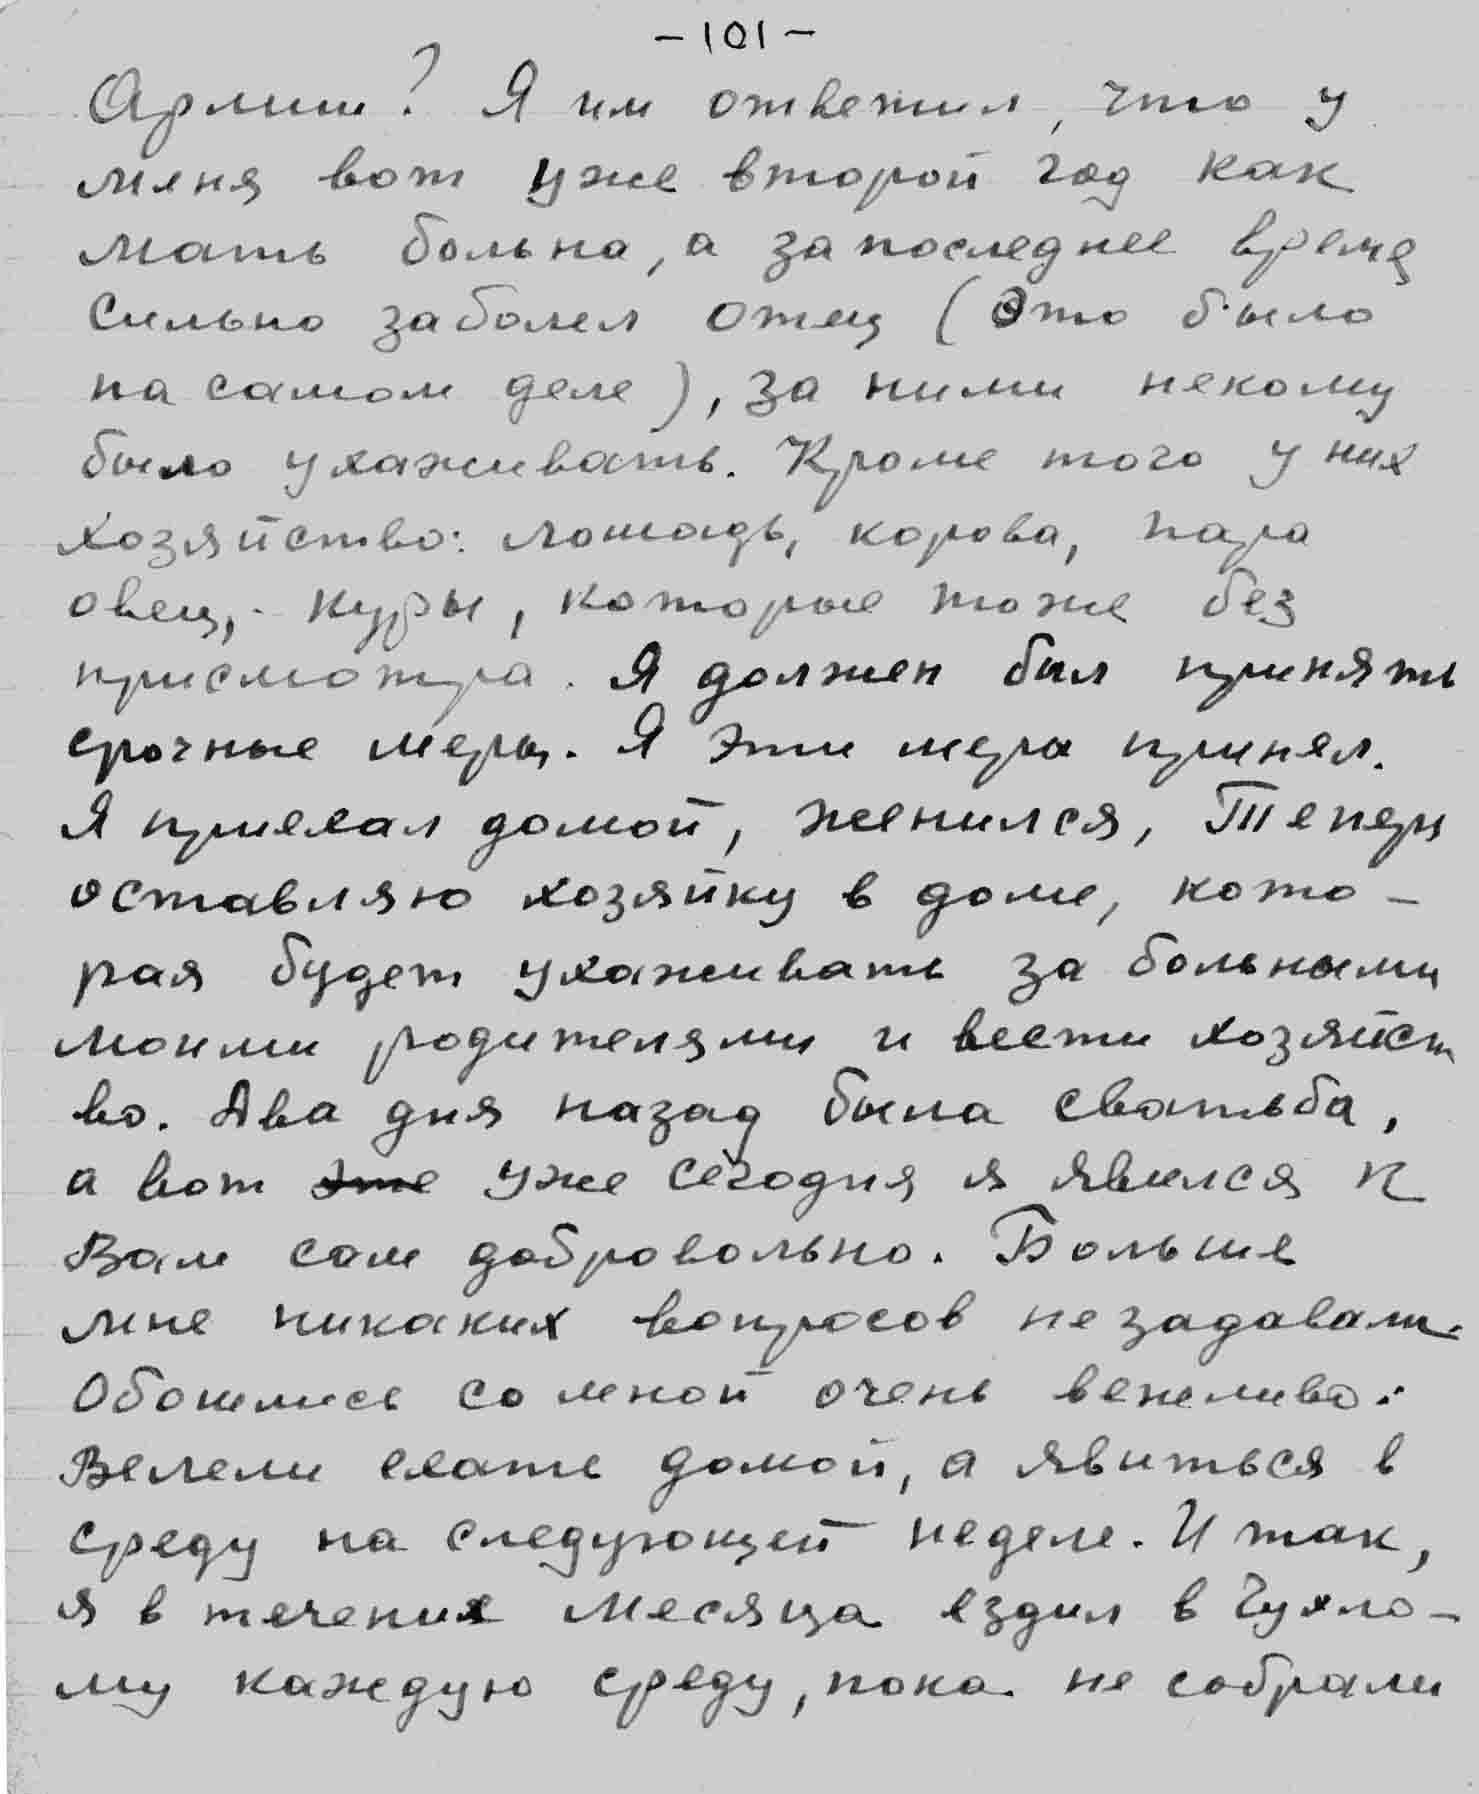 -101-
Армии? Я им ответил, что у
меня вот уже второй год как
мать больна, а за последнее время
сильно заболел отец (это было
на самом деле), за ними некому
было ухаживать. Кроме того у них
хозяйство: лошадь, корова, пара
овец, куры, которые тоже без
присмотра. Я должен был принять
срочные меры. Я эти меры принял.
Я приехал домой, женился, Теперь
оставляю хозяйку в доме, кото-
рая будет ухаживать за больными
моими родителями и вести хозяйст
во. Два дня назад была сватьба,
а вот это уже сегодня я явился к
Вам сам добровольно. Больше
мне никаких вопросов не задавали.
Обошлись со мной очень вежливо:
Велели ехать домой, а явиться в
среду на следующей неделе. И так,
я в течение месяца ездил в Чухло-
му каждую среду, пока не собрали